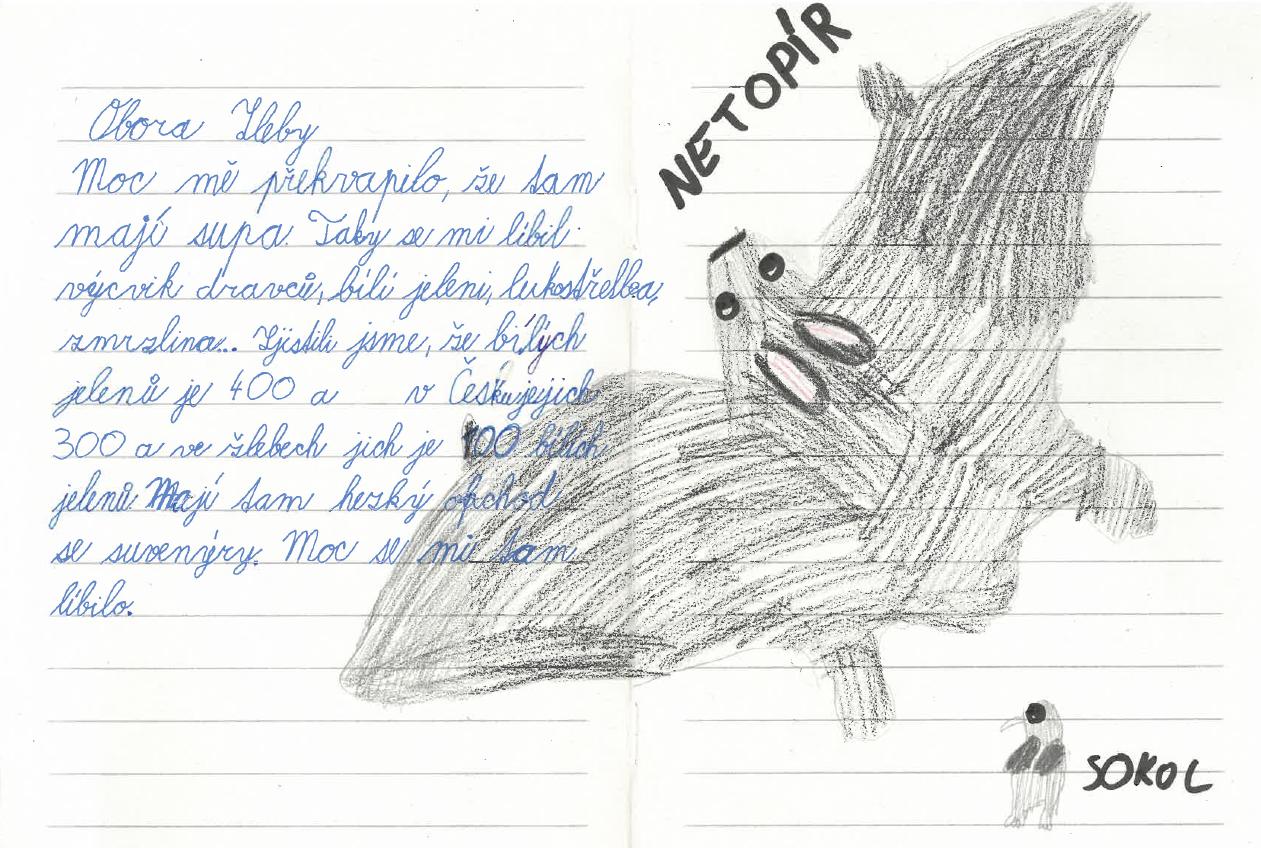 Obora Žleby
Moc mě překvapilo, že tam
mají supa. Taky se mi líbil
výcvik dravců, bílí jeleni, lukostřelba,
zmrzlina... Zjistili jsme, že bílých
jelenů je 400 a v Česku jejich
300 a ve žlebech jich je 100 bílích
jelenů. Mají tam hezký obchod
se suvenýry. Moc se mi tam
líbilo.
NETOPÍR
SOKOL